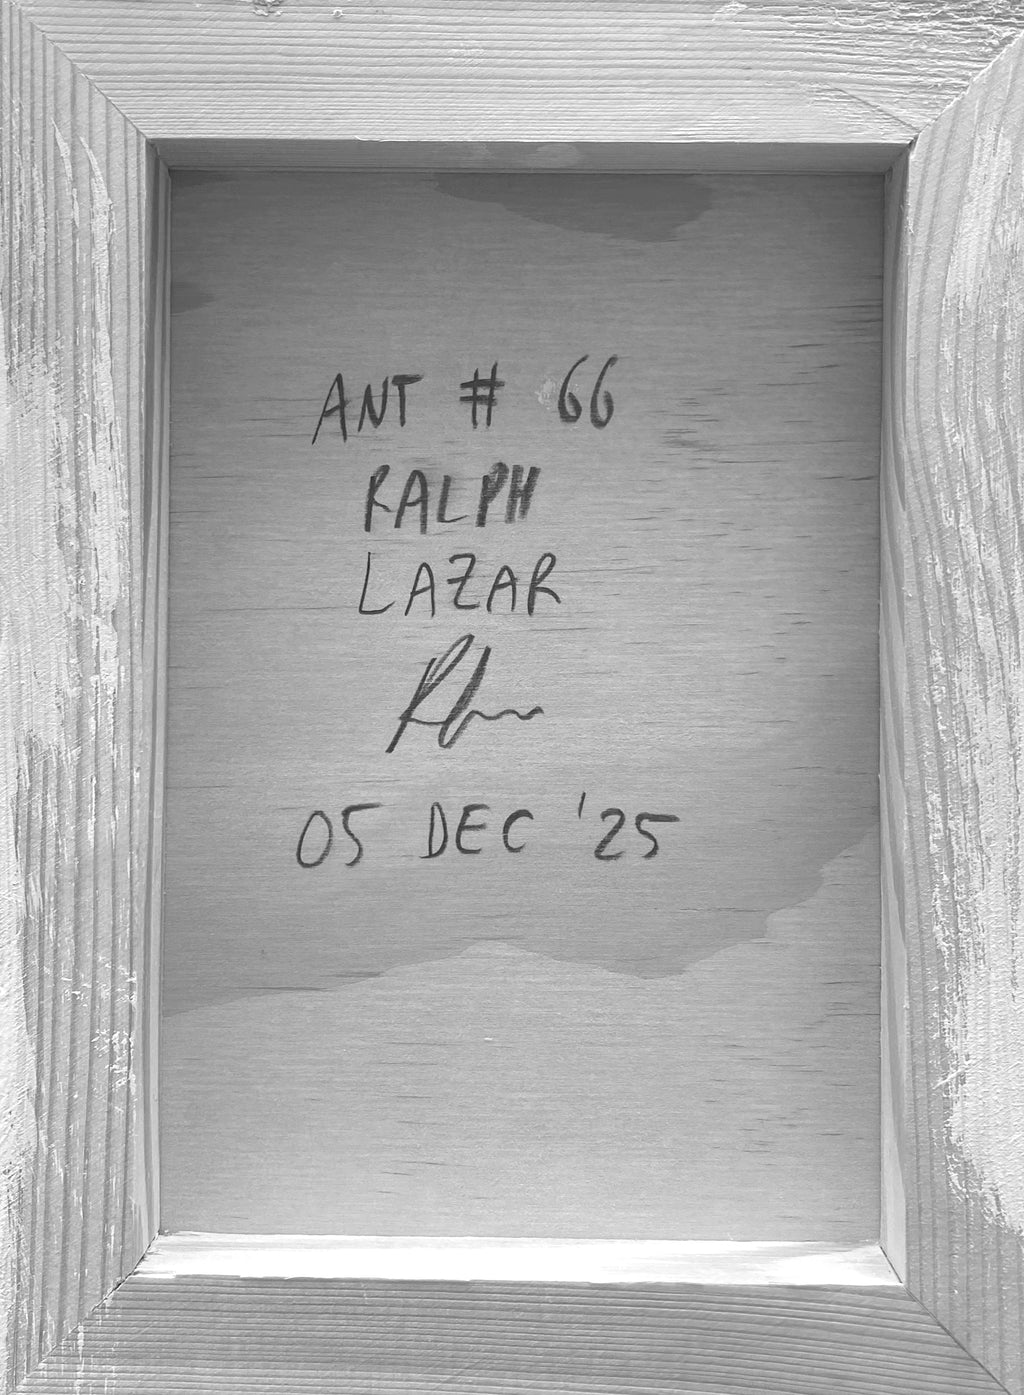 ANT # 66
RALPH
LAZAR
05 DEC '25